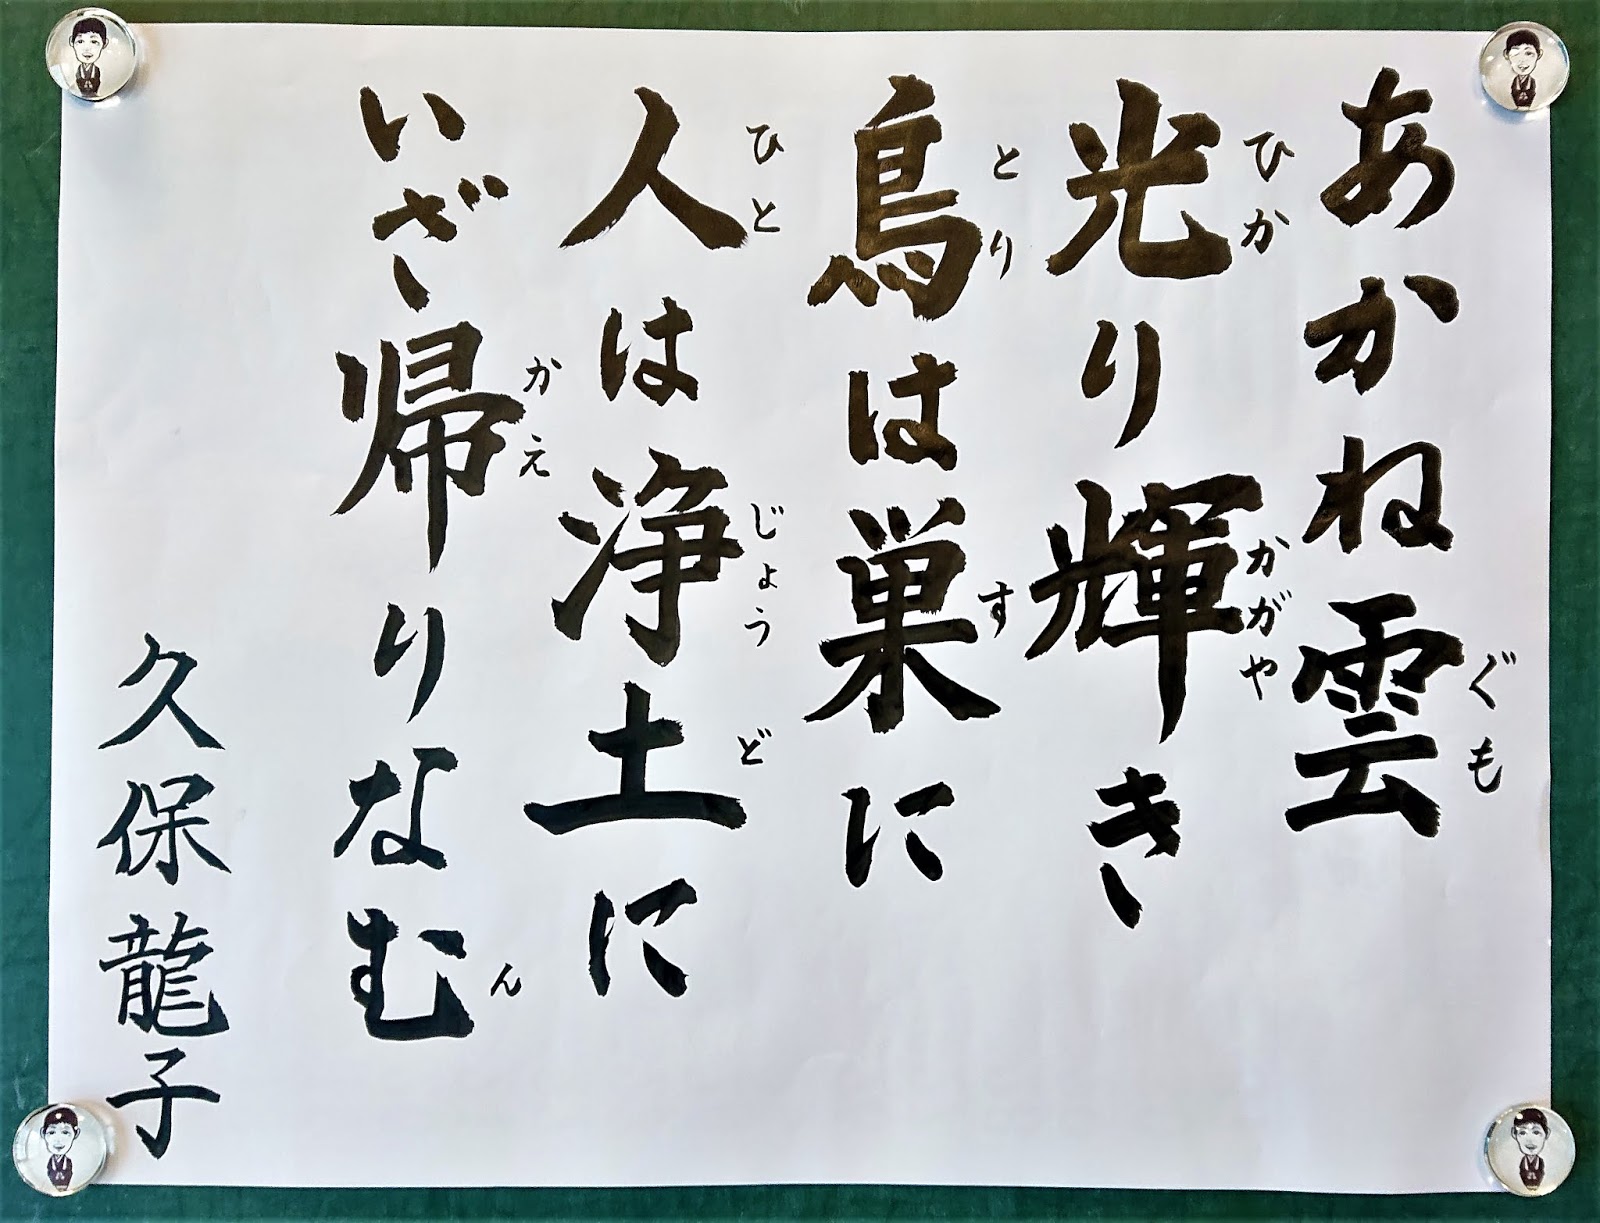 あかね雲
ぐも
光り輝き
ひか
かがや
鳥は巣に
とり
す
人は浄土に
ひと
じょう
ど
いざ帰りなむ
かえ
ん
久保龍子